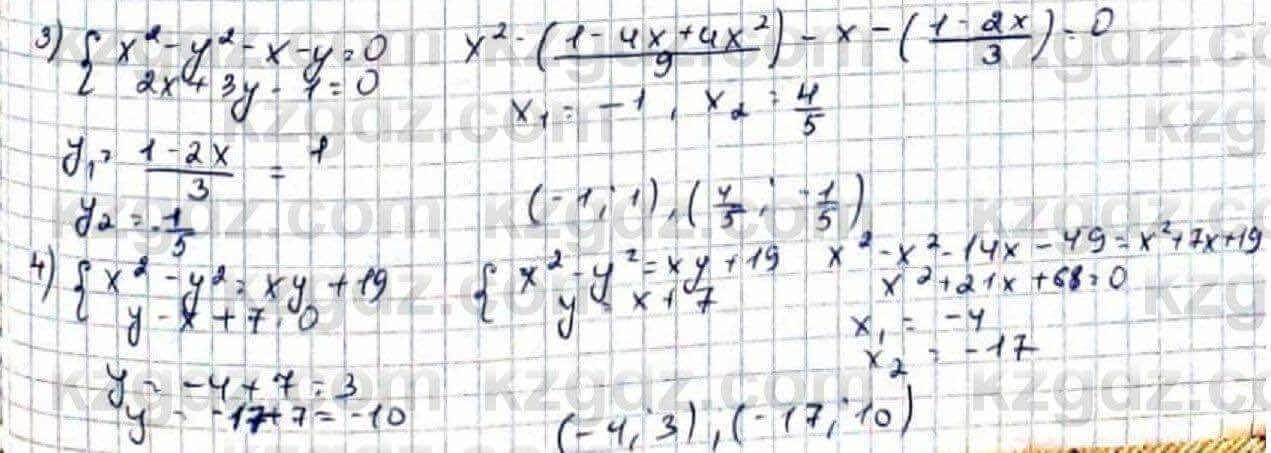 3) { x² - y² - x - y = 0
2x + 3y - 1 = 0
x² - ((1 - 4x + 4x²)/9) - x - ((1 - 2x)/3) = 0
x₁ = -1, x₂ = 4/5
y₁ = (1 - 2x)/3 = 1
y₂ = -1/5
(-1; 1), (4/5; -1/5)
4) { x² - y² = xy + 19
y - x + 7 = 0
{ x² - y² = xy + 19
y = x + 7
x² - x² - 14x - 49 = x² + 7x + 19
x² + 21x + 68 = 0
x₁ = -4
x₂ = -17
y = -4 + 7 = 3
y = -17 + 7 = -10
(-4; 3), (-17; 10)
kzgdz.com